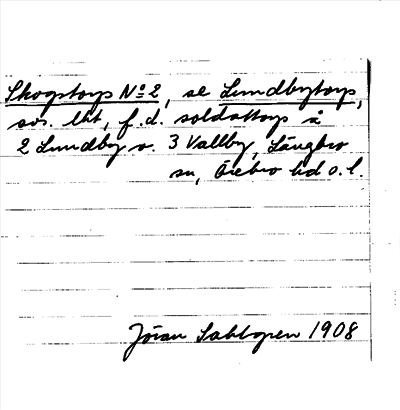 Skogstorp No 2, se Lundbytorp,
sos. lht, f.d. soldattorp å
2 Lundby o. 3 Vallby, Längbro
sn, Örebro hd o. l.
Jöran Sahlgren 1908